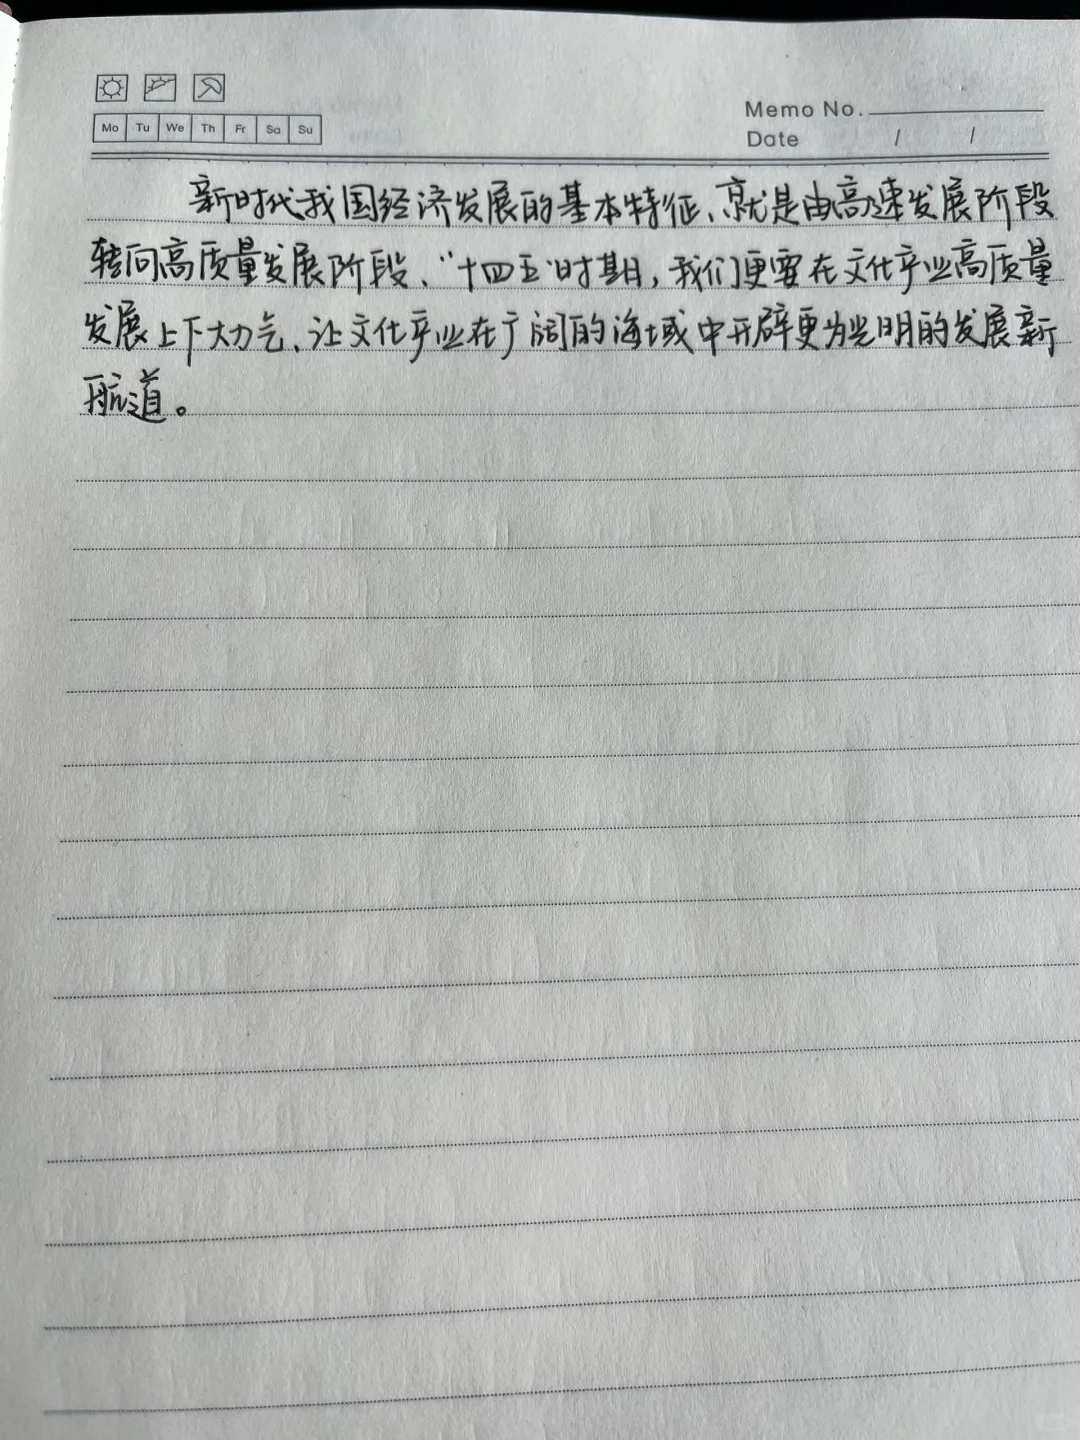 Mo Tu We Th Fr Sa Su
Memo No.
Date / /
新时代我国经济发展的基本特征、就是由高速发展阶段
转向高质量发展阶段、“十四五”时期，我们更要在文化产业高质量
发展上下大力气、让文化产业在广阔的海域中开辟更为光明的发展新
航道。